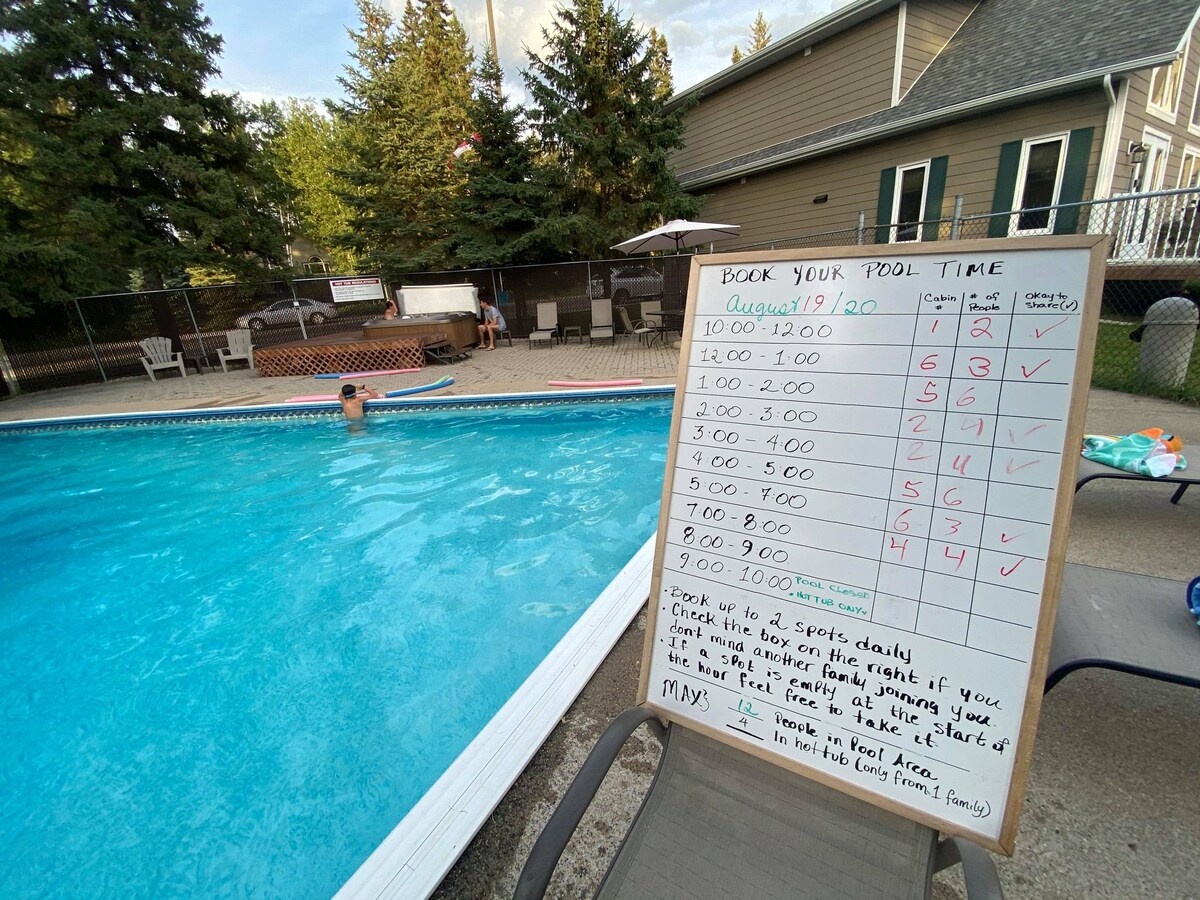 HOT TUB REGULATIONS
BOOK YOUR POOL TIME
August 19/20 Cabin # # of People Okay to share (✓)
10:00 - 12:00 1 2 ✓
12:00 - 1:00 6 3 ✓
1:00 - 2:00 5 6
2:00 - 3:00 2 4 ✓
3:00 - 4:00 2 4 ✓
4:00 - 5:00 5 6
5:00 - 7:00 6 3 ✓
7:00 - 8:00 4 4 ✓
8:00 - 9:00
9:00 - 10:00 POOL CLOSED
• HOT TUB ONLY
• Book up to 2 spots daily
• Check the box on the right if you
don't mind another family joining you.
• If a spot is empty at the start of
the hour feel free to take it.
MAX: 12 People in Pool Area
4 In hot tub (only from 1 family)